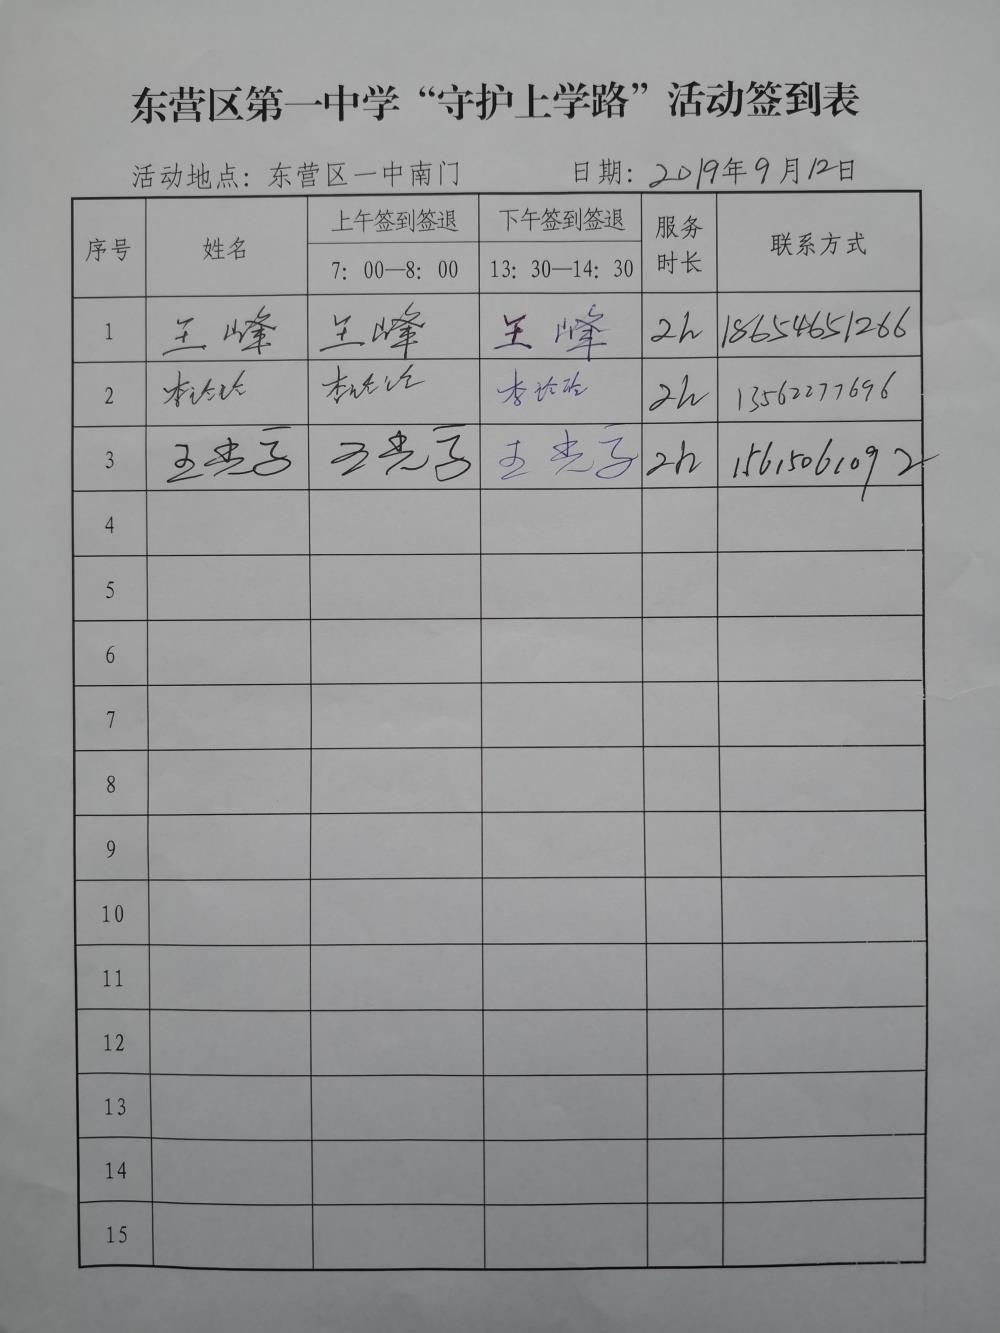 东营区第一中学“守护上学路”活动签到表
活动地点：东营区一中南门 日期：2019年9月12日
序号 姓名 上午签到签退 下午签到签退 服务时长 联系方式
7：00—8：00 13：30—14：30
1 王峰 王峰 王峰 2h 18654651266
2 李玲玲 李玲玲 李玲玲 2h 13562277696
3 王 王 王 2h 15615061092
4
5
6
7
8
9
10
11
12
13
14
15